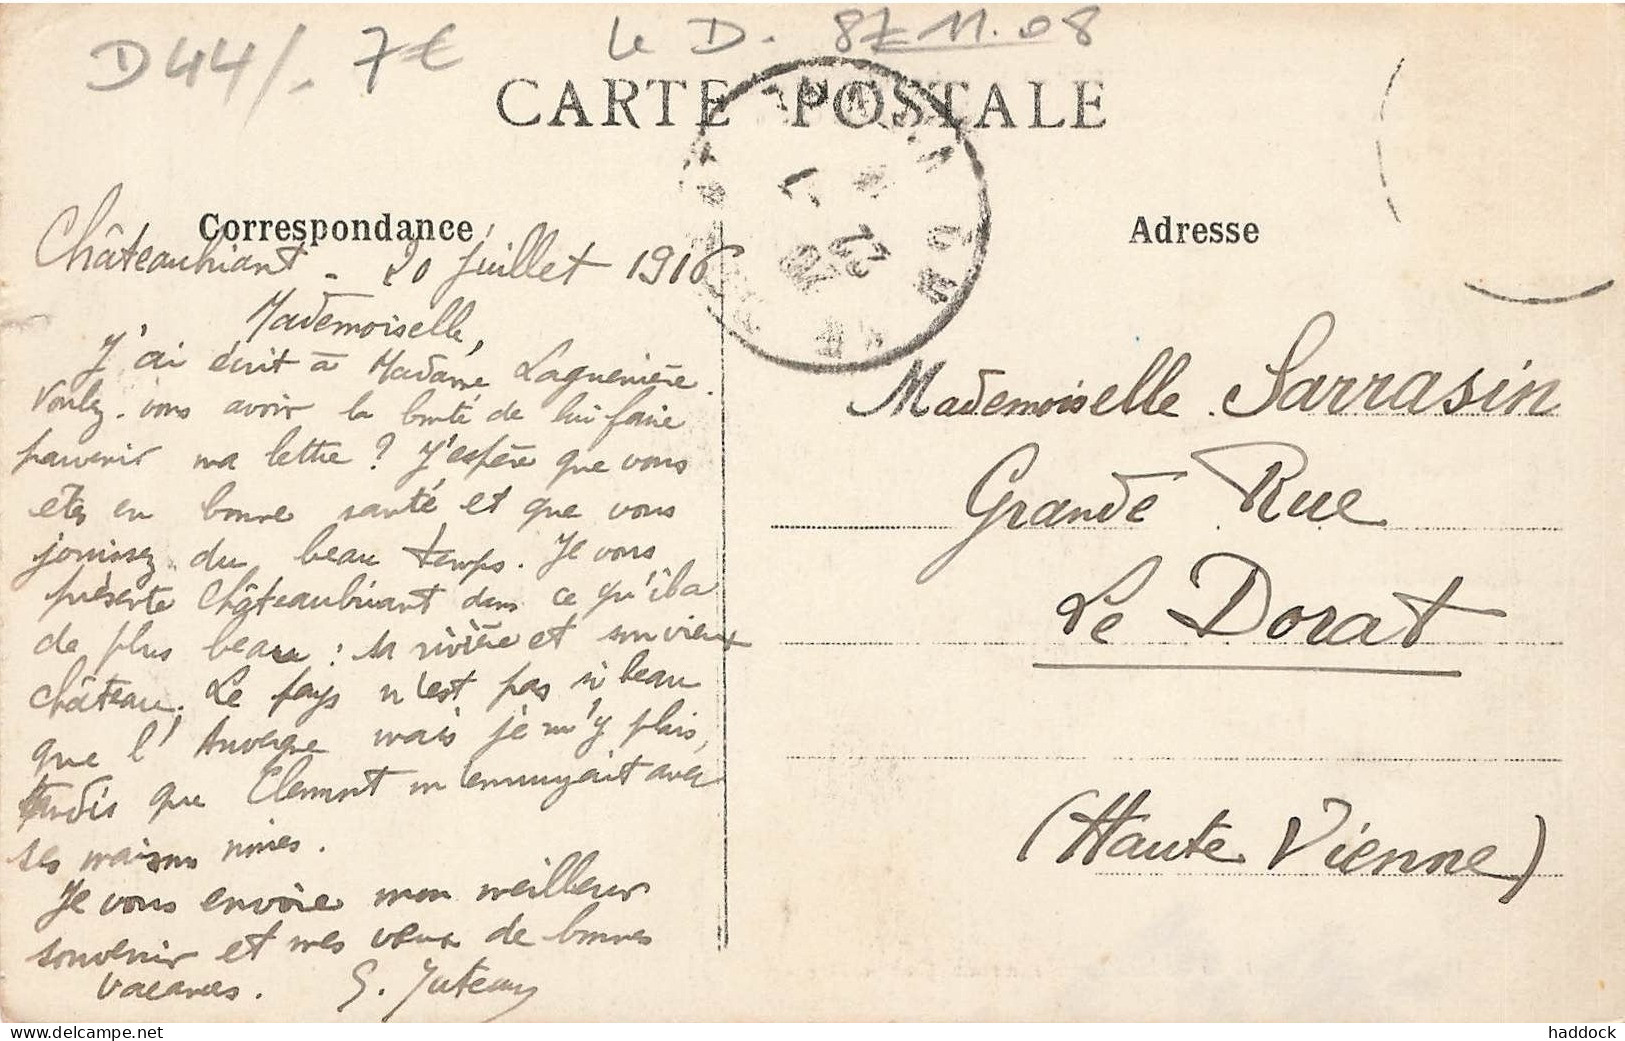 D44/. 7€
Le D. 87-11.08
CARTE POSTALE
Correspondance
Adresse
Châteaubriant - 20 Juillet 1916
Mademoiselle,
J'ai écrit à Madame Laguenière.
Voulez-vous avoir la bonté de lui faire
parvenir ma lettre ? J'espère que vous
êtes en bonne santé et que vous
jouissez du beau temps. Je vous
présente Châteaubriant dans ce qu'il a
de plus beau : sa rivière et son vieux
château. Le pays n'est pas si beau
que l'Auvergne mais je m'y plais,
tandis que Clermont m'ennuyait avec
ses maisons noires.
Je vous envoie mon meilleur
souvenir et mes vœux de bonnes
vacances. G. Juteau
Mademoiselle Sarrasin
Grande Rue
Le Dorat
(Haute Vienne)
https://www.delcampe.net
haddock